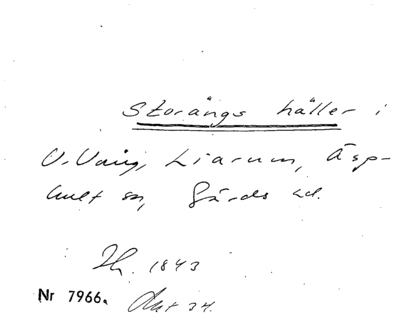 Storängs häller i
V. Vång, Liarum, Äsp-
hult sn, Gärds hd.
Jh. 1843
Nr 7966.
Akt 34.